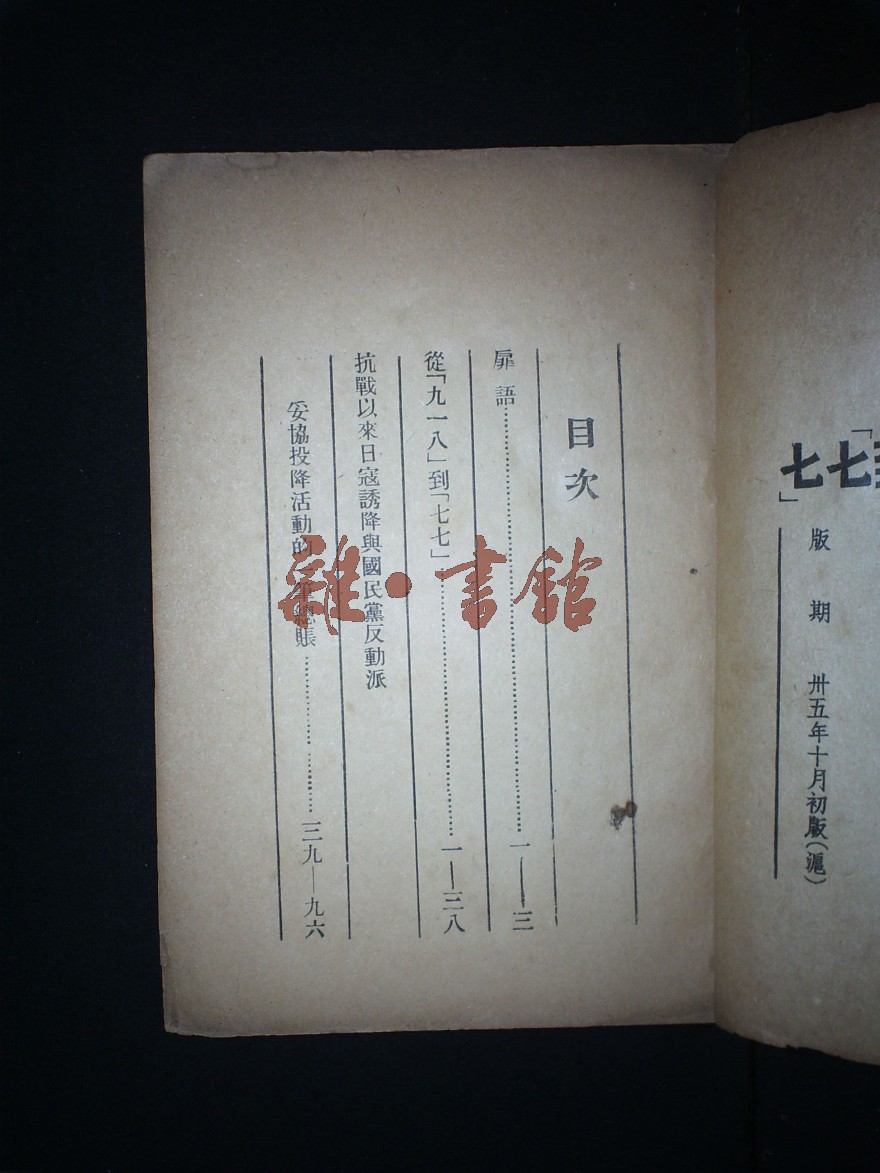 「
七七」
版期　卅五年十月初版（滬）
目次
扉語……一——三
從「九一八」到「七七」……一——三八
抗戰以來日寇誘降與國民黨反動派
妥協投降活動的一筆總賬……三九—九六
雜·書館